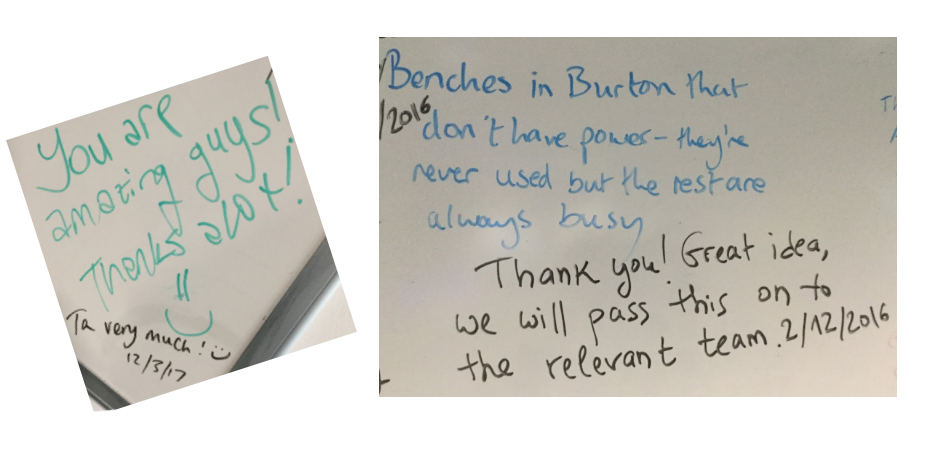 You are
amazing guys!
Thanks alot!
Ta very much!
12/3/17
Benches in Burton that
/2016
don't have power - they're
never used but the rest are
always busy
Thank you! Great idea,
we will pass this on to
the relevant team. 2/12/2016